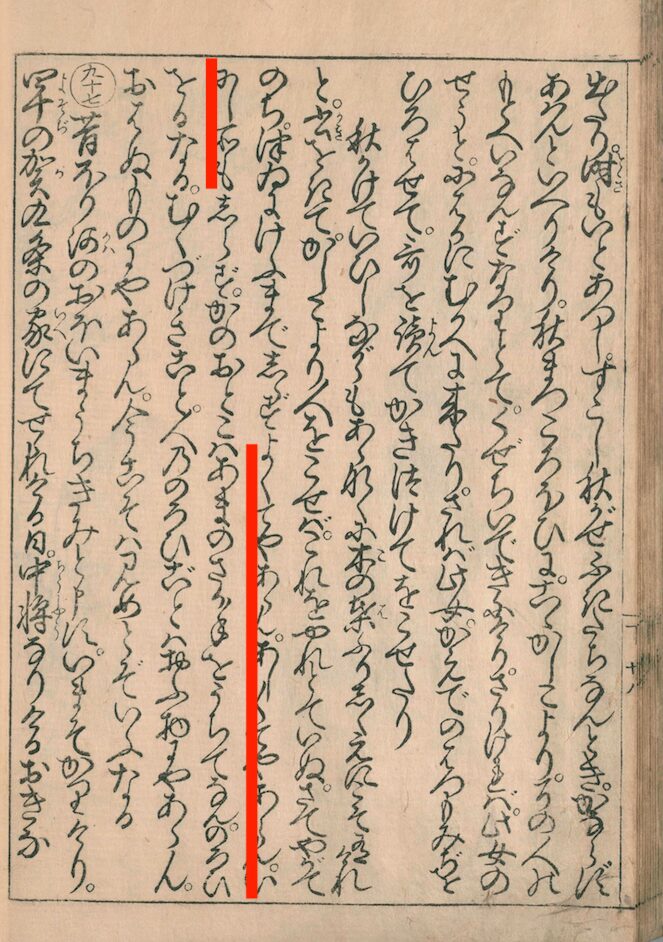 出たり。時もいとあつし。すこし秋かぜふきたちなんとき。かならず
あはんといへりけり。秋まつころほひに。こゝかしこより。その人のも
とへいなんずなりとて。くぜちいできにけり。さりければ。此女の
せうと。にはかにむかへに来たり。されば此女。かえでのはつもみぢを
ひろはせて。哥を讀てかき付けてをこせたり
秋かけていひしながらもあらなくに木の葉ふりしくえにこそ有けれ
と。かきをきて。かしこより人をこせば。これをやれとていぬ。さてやがて
のち。つゐにけふまでしらず。よくてやあらん。あしくてやあらん。い
にし所もしらず。かのおとこはあまのさか手をうちてなん。のろひ
をるなる。むくつけきこと。人のゝろひごとはおふ物にやあらん。
おはぬものにやあらん。今こそは見めとぞいふなる
九十七 昔ほり河のおほいまうちきみと申す。いまそかりけり。
四十の賀九条の家にてせられける日。中将なりけるおきな